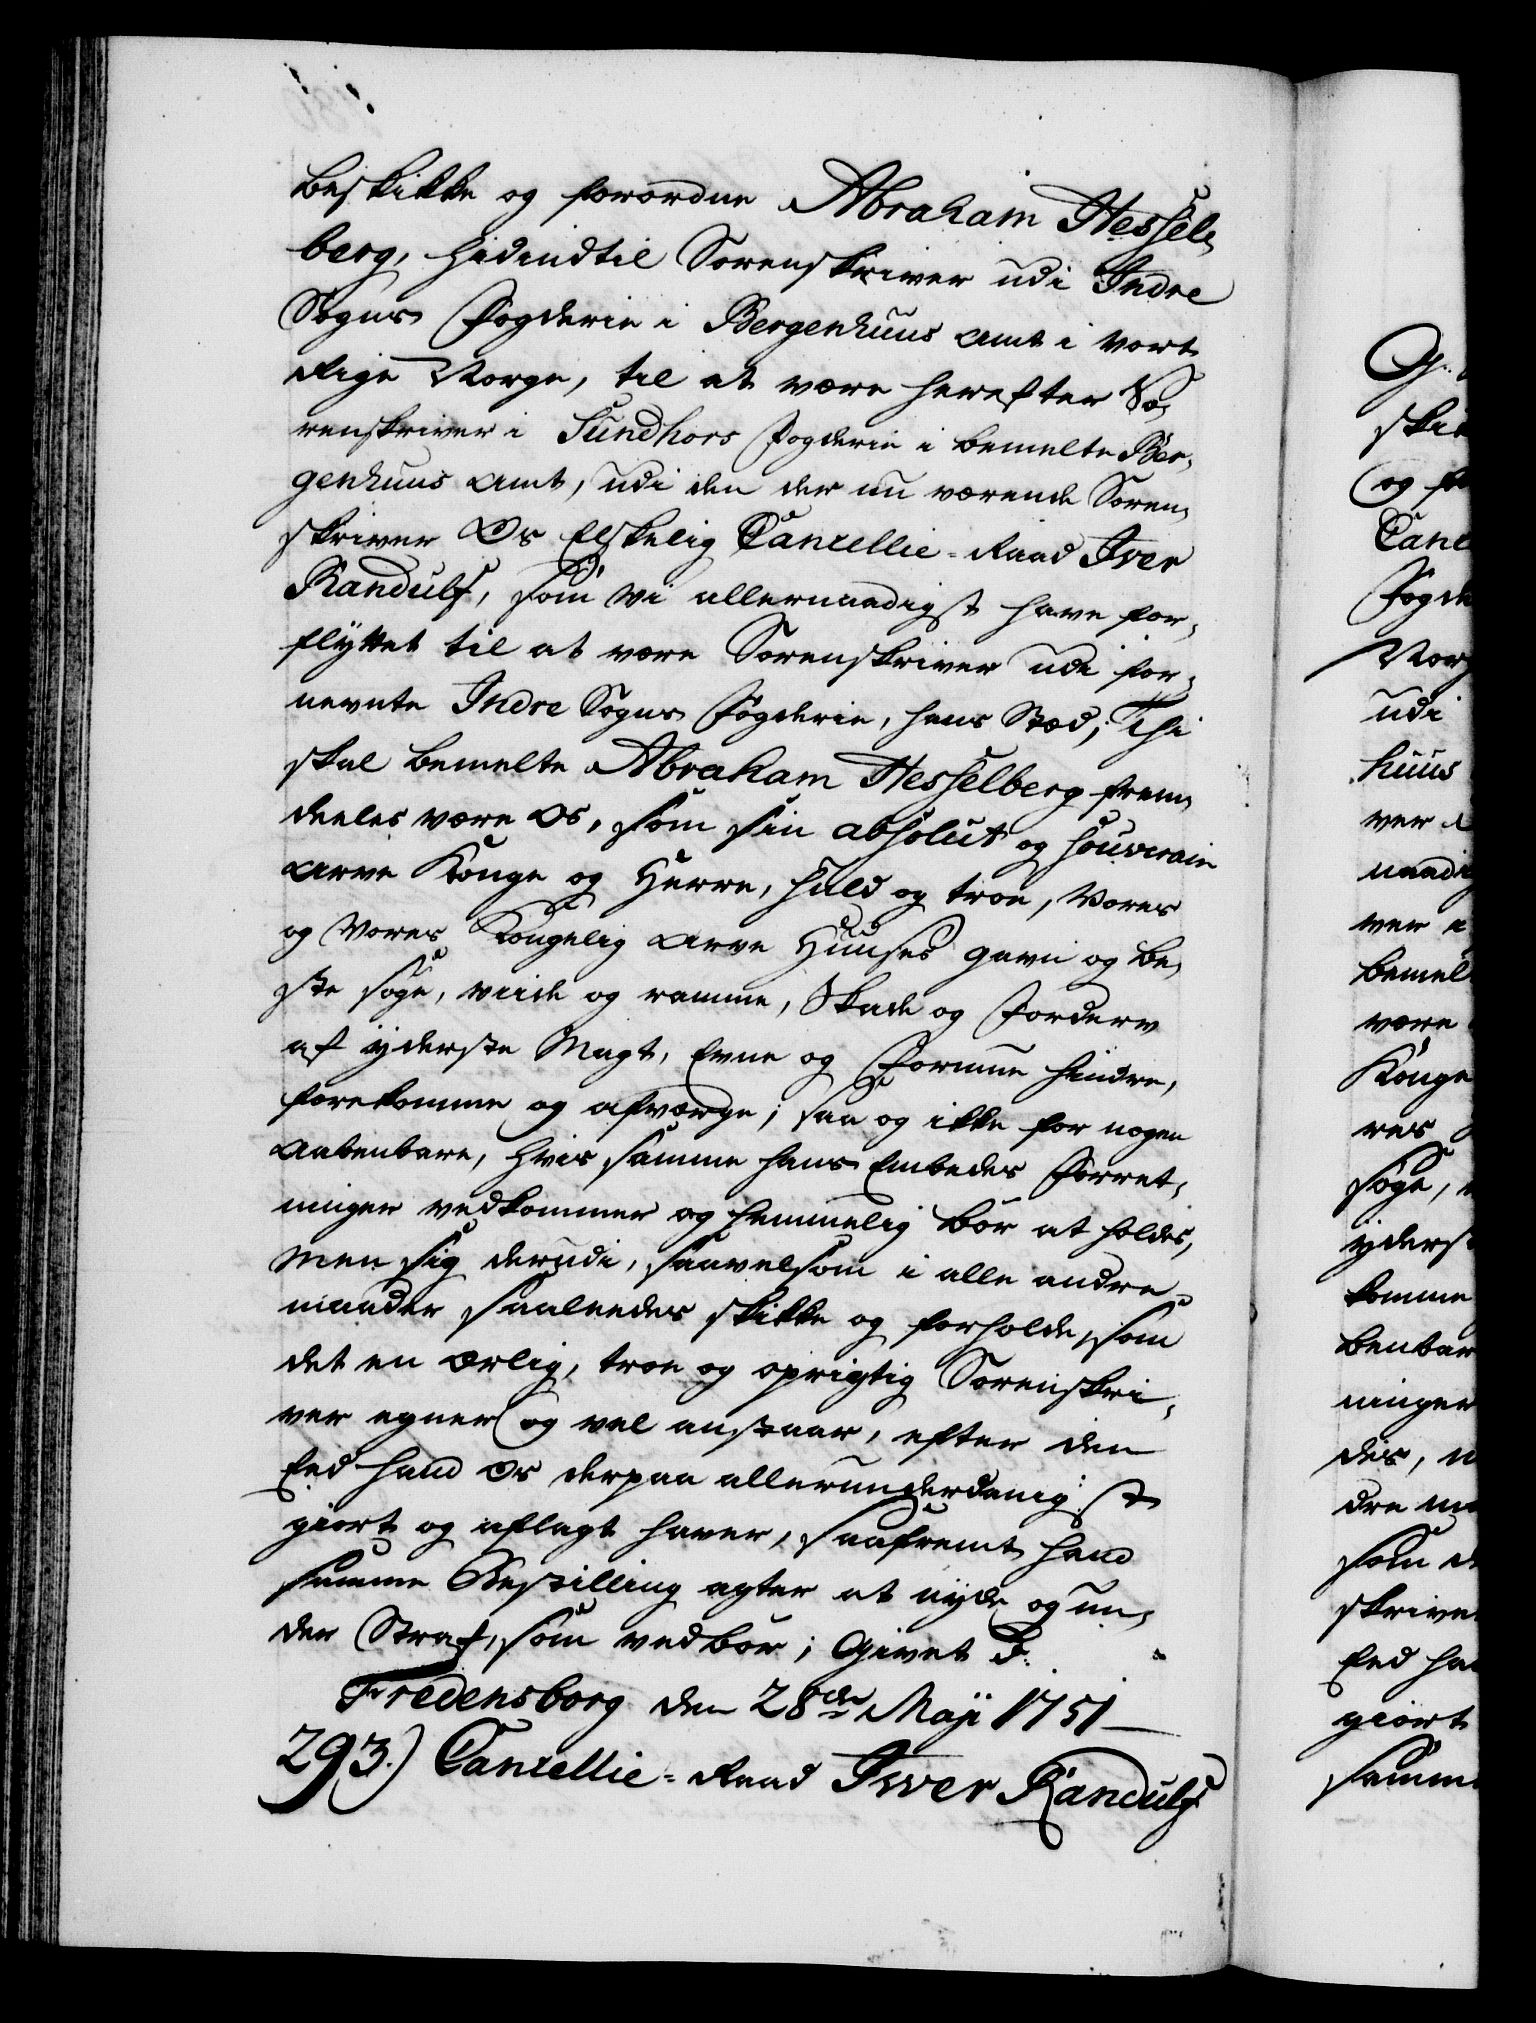 beskikke og forordne Abraham Hessel-
berg, hidindtil Sorenskriver udi Indre
Sogns Fogderie i Bergenhuus Amt i vort
Rige Norge, til at være herefter So-
renskriver i Sundhors Fogderie i bemelte Ber-
genhuus Amt, udi den der nu værende Soren-
skriver Os Elskelig Cancellie-Raad Iver
Randulf, som vi allernaadigst have for-
flyttet til at være Sorenskriver udi for-
nevnte Indre Sogns Fogderie, hans Stæd; Thi
skal bemelte Abraham Hesselberg frem-
deeles være Os, som sin absolut og souverain
Arve Konge og Herre, huld og troe, Vores
og Vores Kongelig Arve Huuses gavn og be-
ste søge, viide og ramme, Skade og Forderv
af yderste Magt, Evne og Formue hindre,
forekomme og afværge; saa og ikke for nogen
aabenbare, hvis samme hans Embedes Forret-
ninger vedkommer og hemmelig bør at holdes,
Men sig derudi, saavelsom i alle andre
maader saaleedes skikke og forholde, som
det en ærlig, troe og oprigtig Sorenskri-
ver egner og vel anstaar, efter den
Eed hand Os derpaa allerunderdanigst
giort og aflagt haver, saafremt hand
samme Bestilling agter at nyde og un-
der Straf, som vedbør; Givet P.
Fredensborg den 28de Maji 1751
293.) Cancellie-Raad Iver Randulf
G.
ski
og fo
Canc
Fogde
Norg
udi
huus
ver
naadi
ver
bemel
være
Konge
res
søge,
yders
komme
benbar
ninger
des,
dre
som
skrive
Eed ha
giort
samm